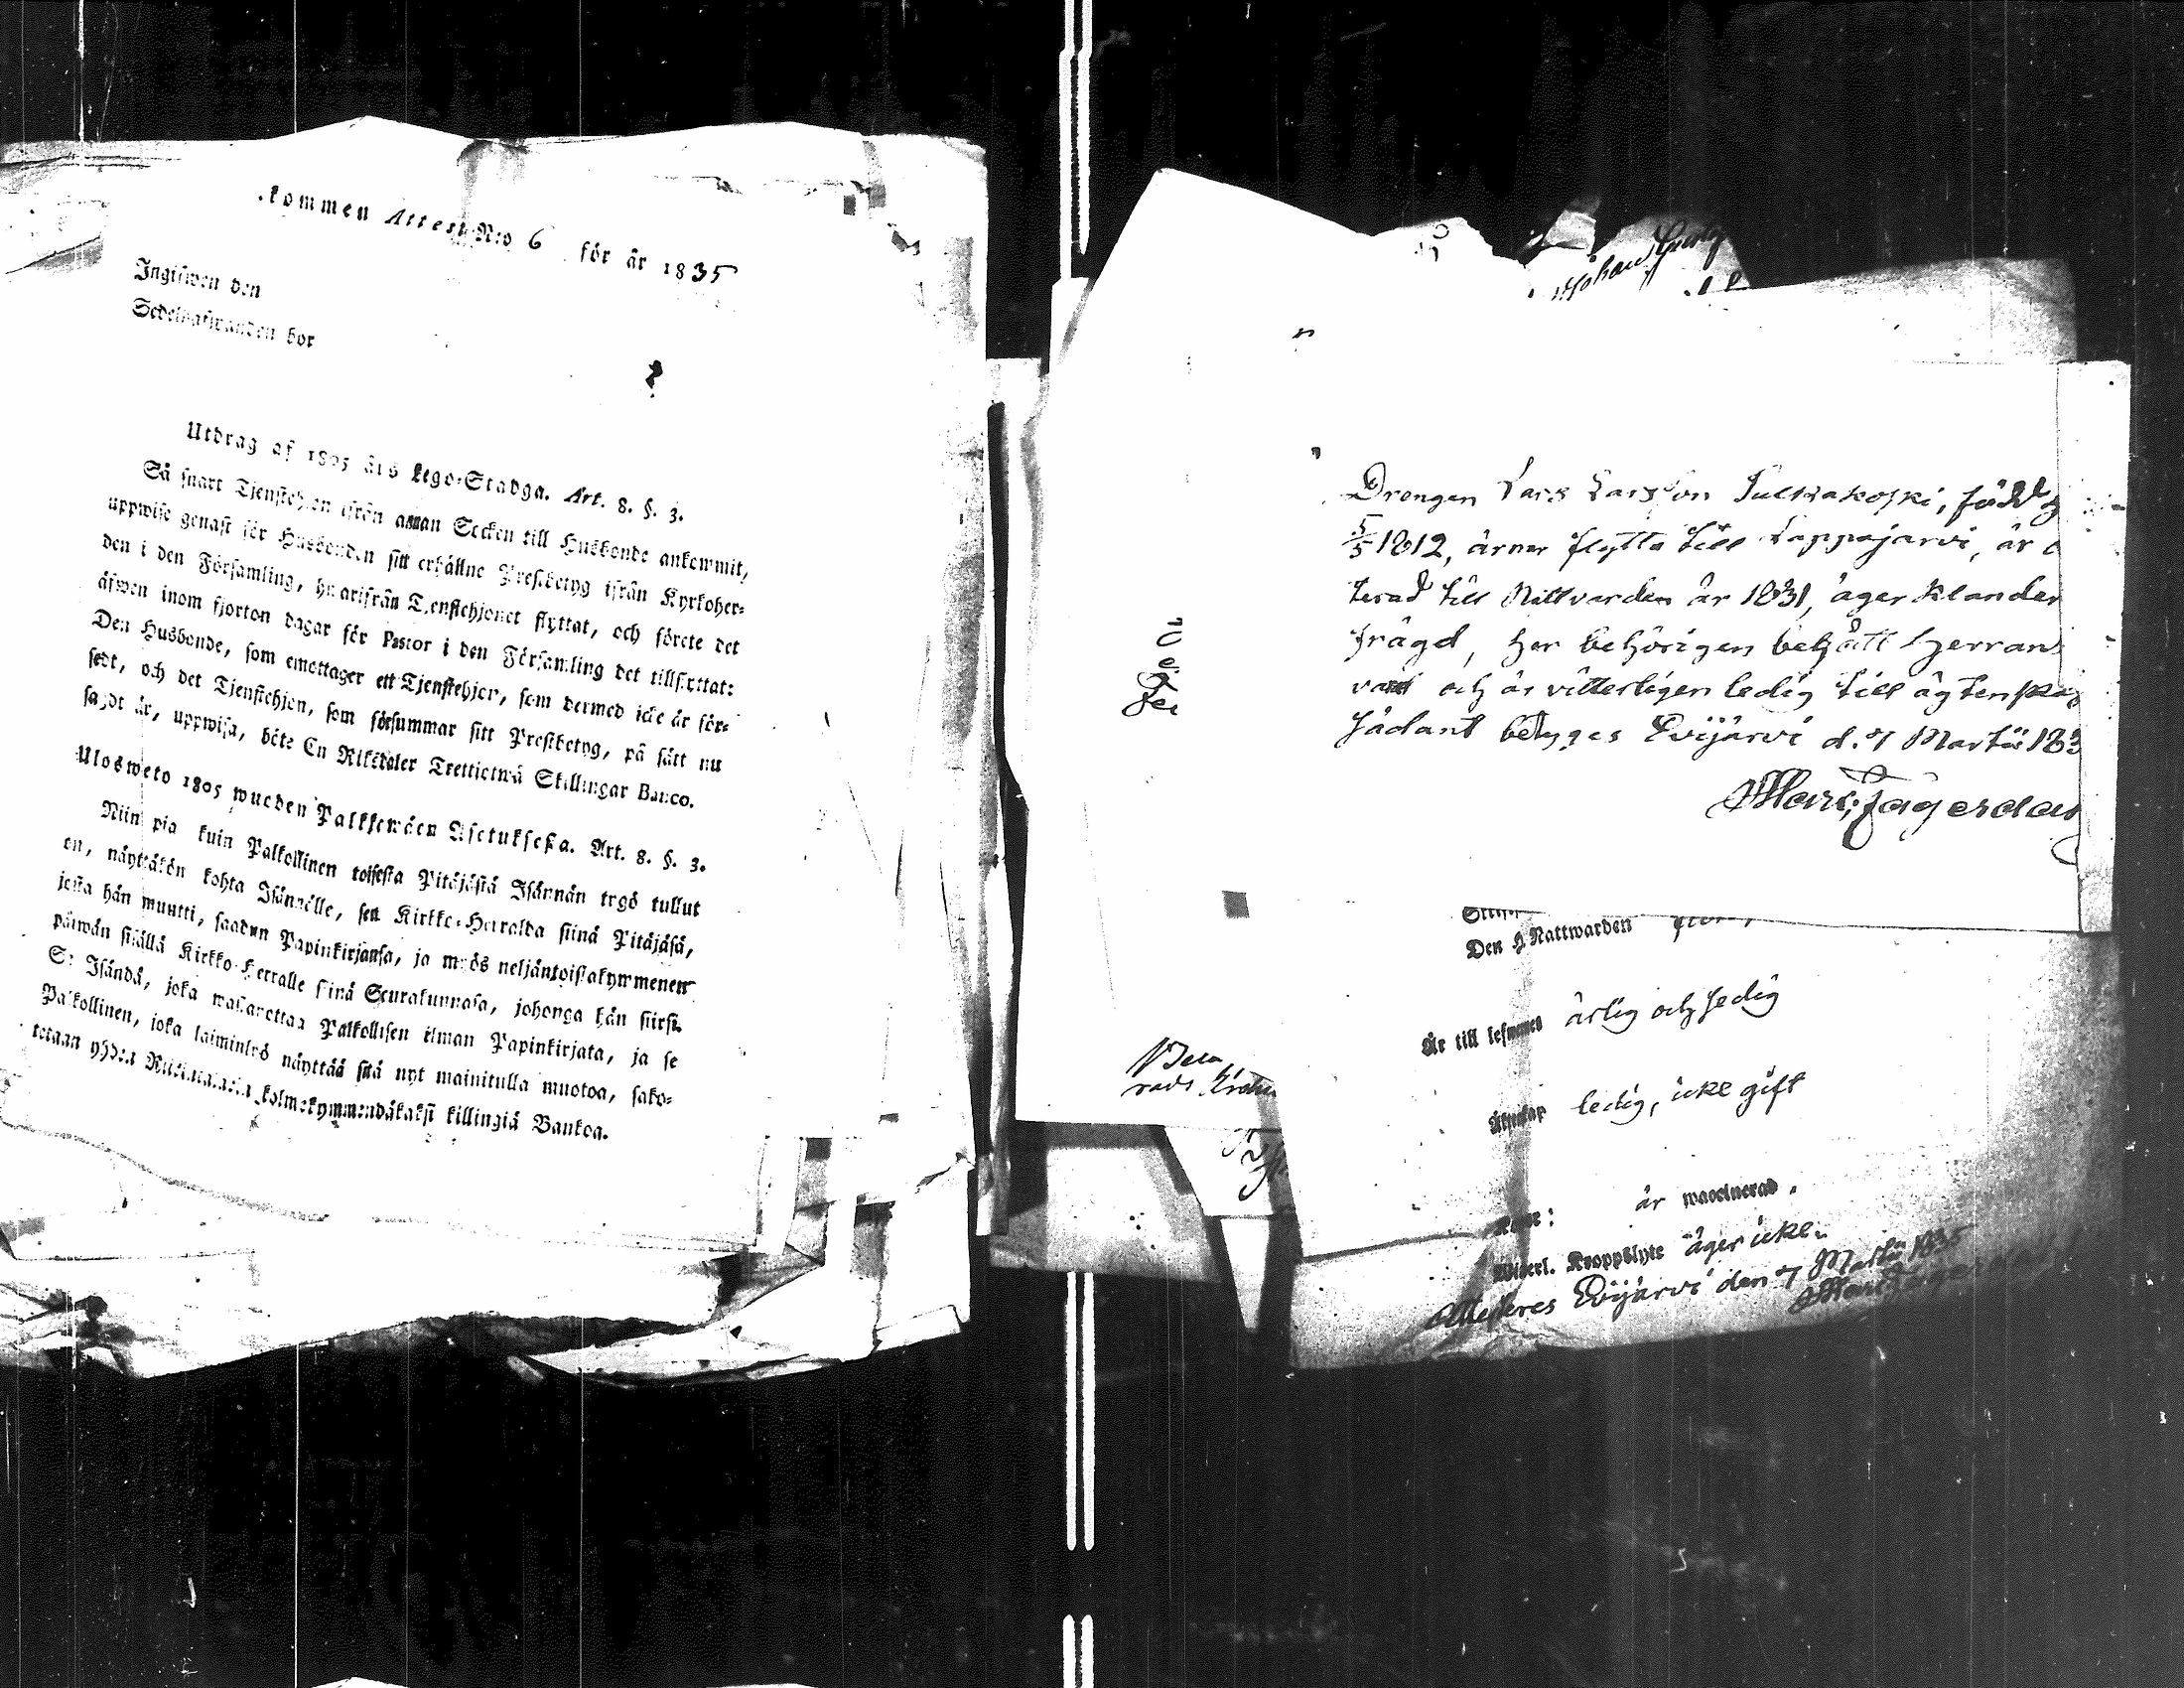 kommen Attest N:o 6 för år 1835
Ingifwen den
Sedelhafwanden bor
Utdrag af 1805 års Lego-Stadga. Art. 8. §. 3.
Så snart Tjenstehjon ifrån annan Socken till Husbonde ankommit,
uppwise genast för Husbonden sitt erhållne Prestbetyg ifrån Kyrkoher-
den i den Församling, hwarifrån Tjenstehjonet flyttat, och förete det
äfwen inom fjorton dagar för Pastor i den Församling det tillflyttat:
Den Husbonde, som emottager ett Tjenstehjon, som dermed icke är för-
sedt, och det Tjenstehjon, som försummar sitt Prestbetyg, på sätt nu
sagdt är, uppwisa, böte En Riksdaler Trettiotwå Skillingar Banco.
Ulosweto 1805 wuoden Palkkewäen Asetuksesta. Art. 8. §. 3.
Niin pia kuin Palkollinen toisesta Pitäjästä Isännän tygö tullut
on, näyttäkön kohta Isännälle, sen Kirkko-Herralda siinä Pitäjäsä,
josta hän muutti, saadun Papinkirjansa, ja myös neljäntoistakymmenen
päiwän sisällä Kirkko-Herralle siinä Seurakunnasa, johonga hän siirsi.
Se Isändä, joka wastanottaa Palkollisen ilman Papinkirjata, ja se
Palkollinen, joka laiminlyö näyttää sitä nyt mainitulla muotoa, sako-
tetaan yhden Riikintalarin kolmekymmendäkaksi killingiä Bankoa.
Johan Gust
Drengen Lars Larsson Sulkakoski, född
5/5 1812, ärnar flytta till Lappajärvi, är
terad till Nattvarden år 1831, äger klander
frägd, har behörigen begått Herrans
vard och är vitterligen ledig till ägtenska
Sådant betyges Evijärvi d. 7 Martii 183
Den H Nattwarden
Är till lefwernet ärlig och sedig
Äktenskap ledig, icke gift
är waccinerad.
Widerl. Kroppslyte äger icke.
Attesteres Evijärvi den 7 Martii 1835